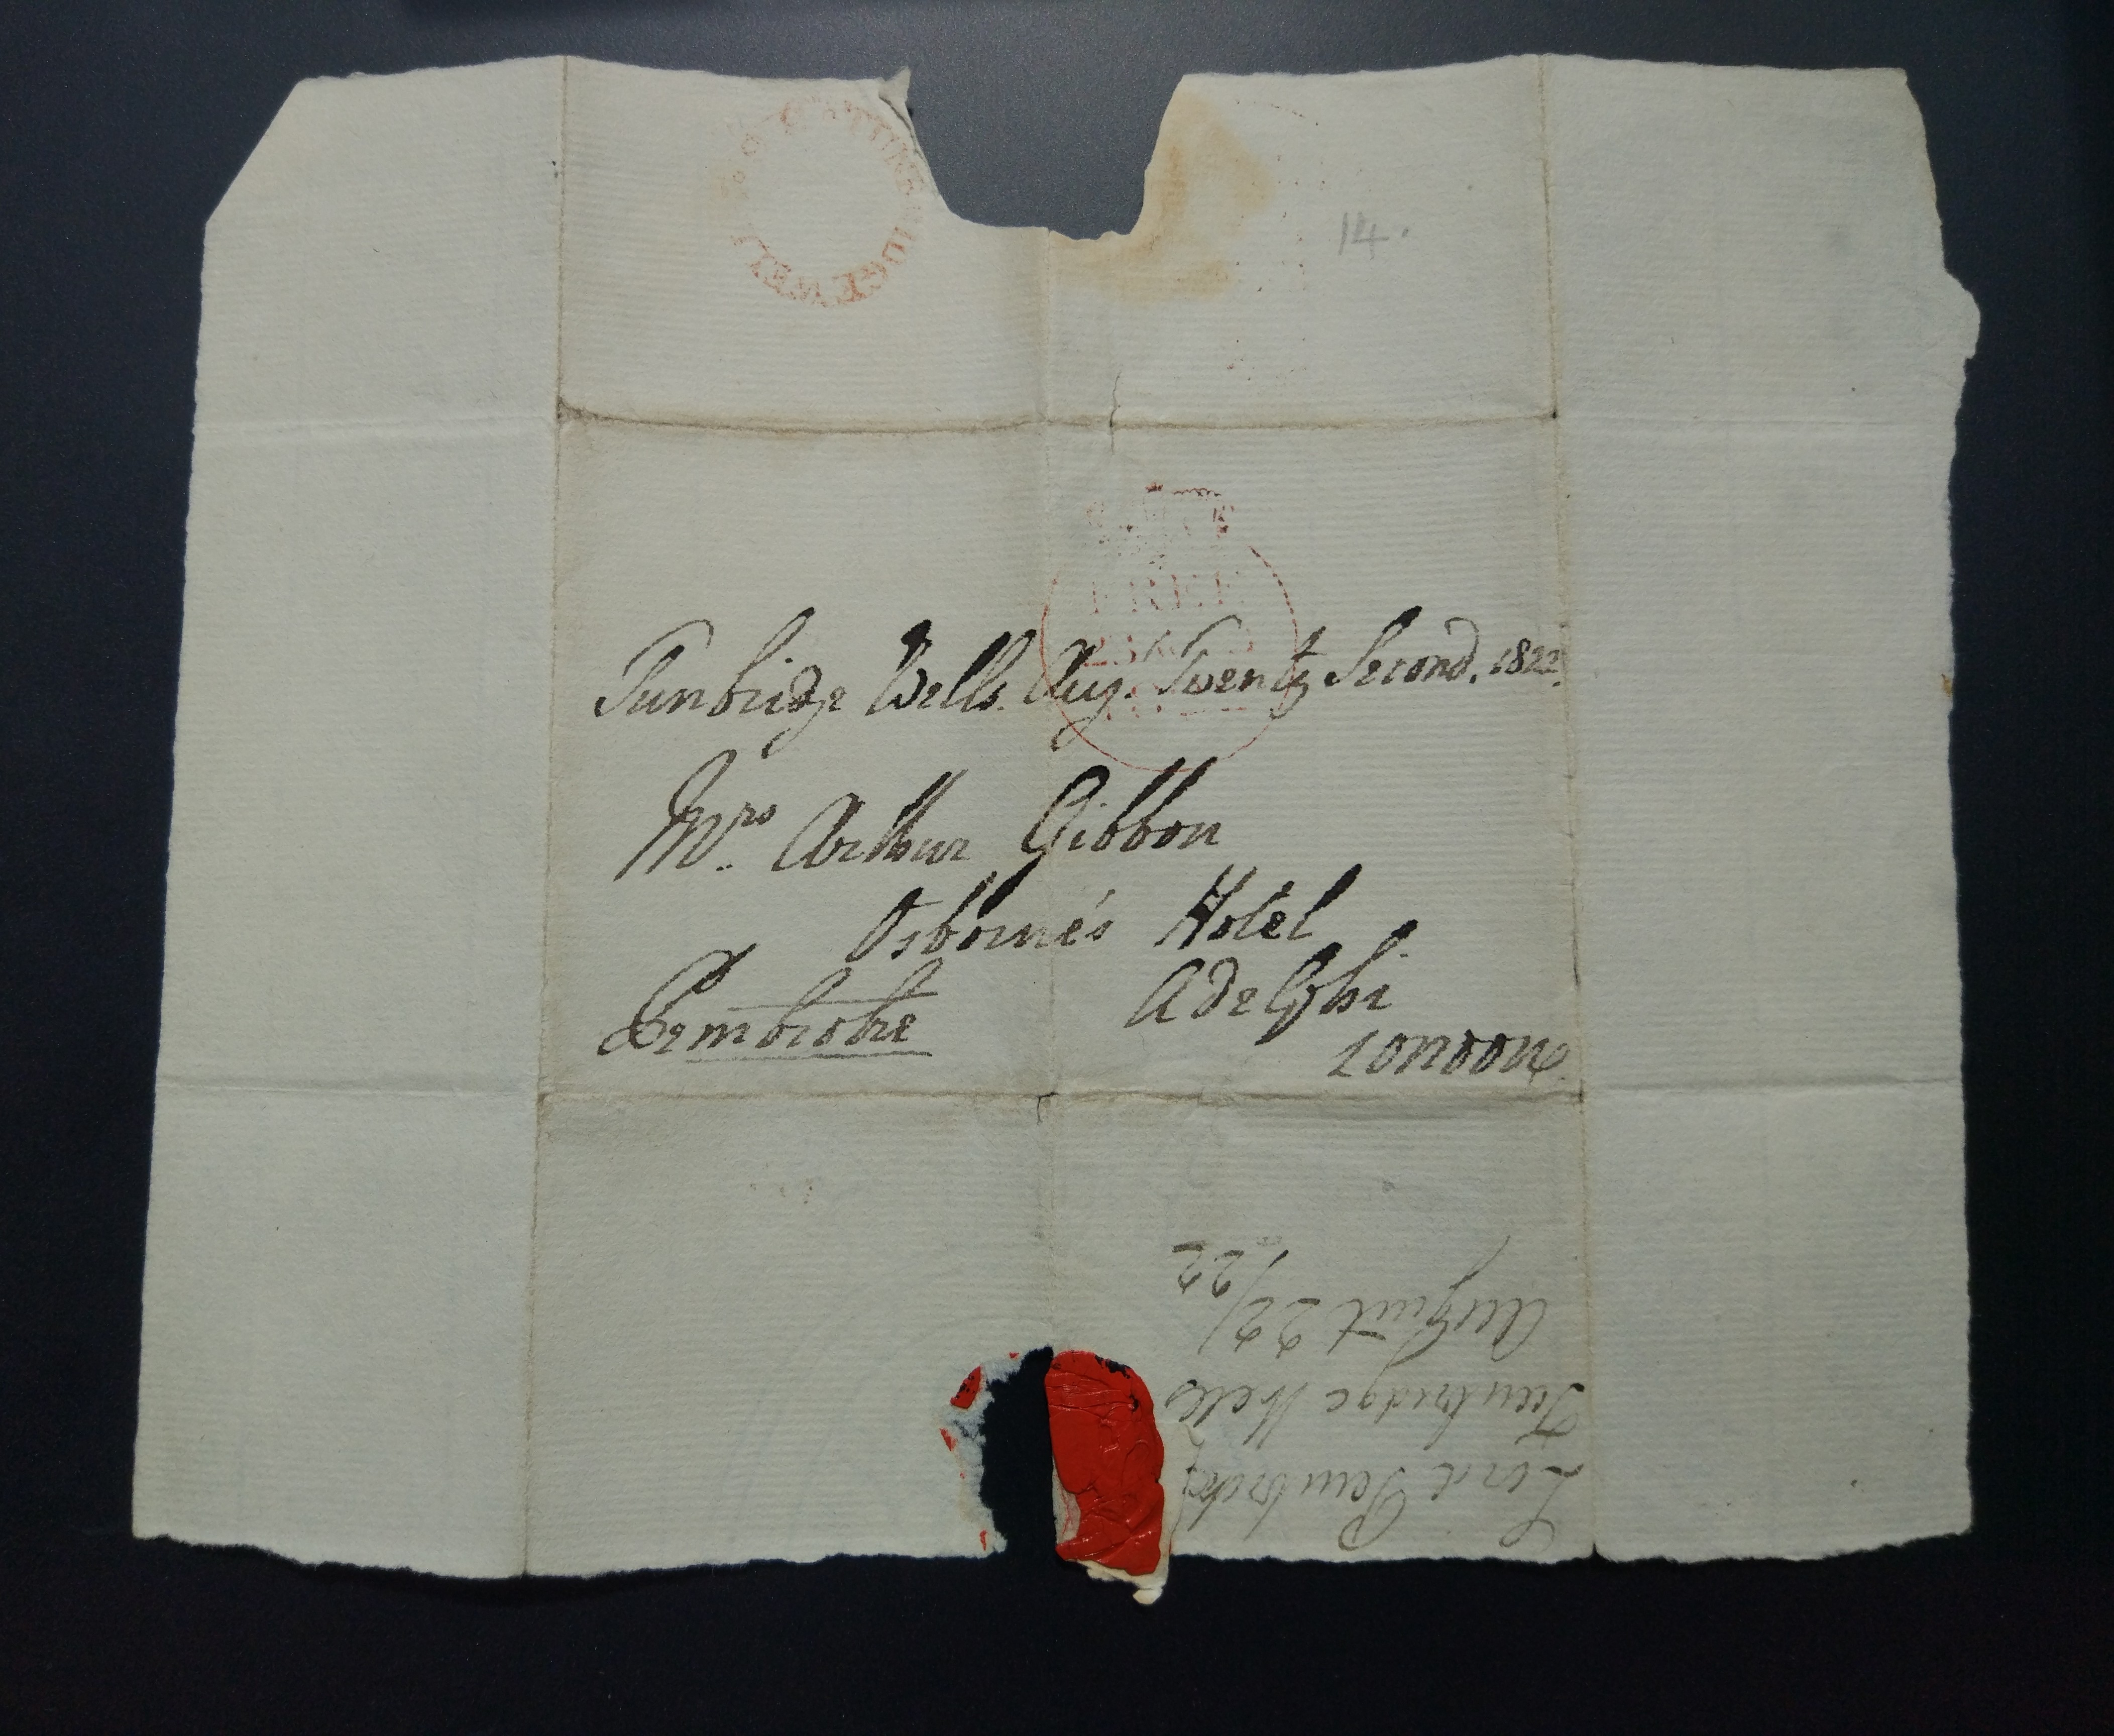 14.
FREE
Tunbridge Wells. Aug. Twenty Second. 1822.
Mrs. Arthur Gibbon
Osborne's Hotel
Pembroke Adelphi
London
Lord Pembroke
Tunbridge Wells
August 22/
/22